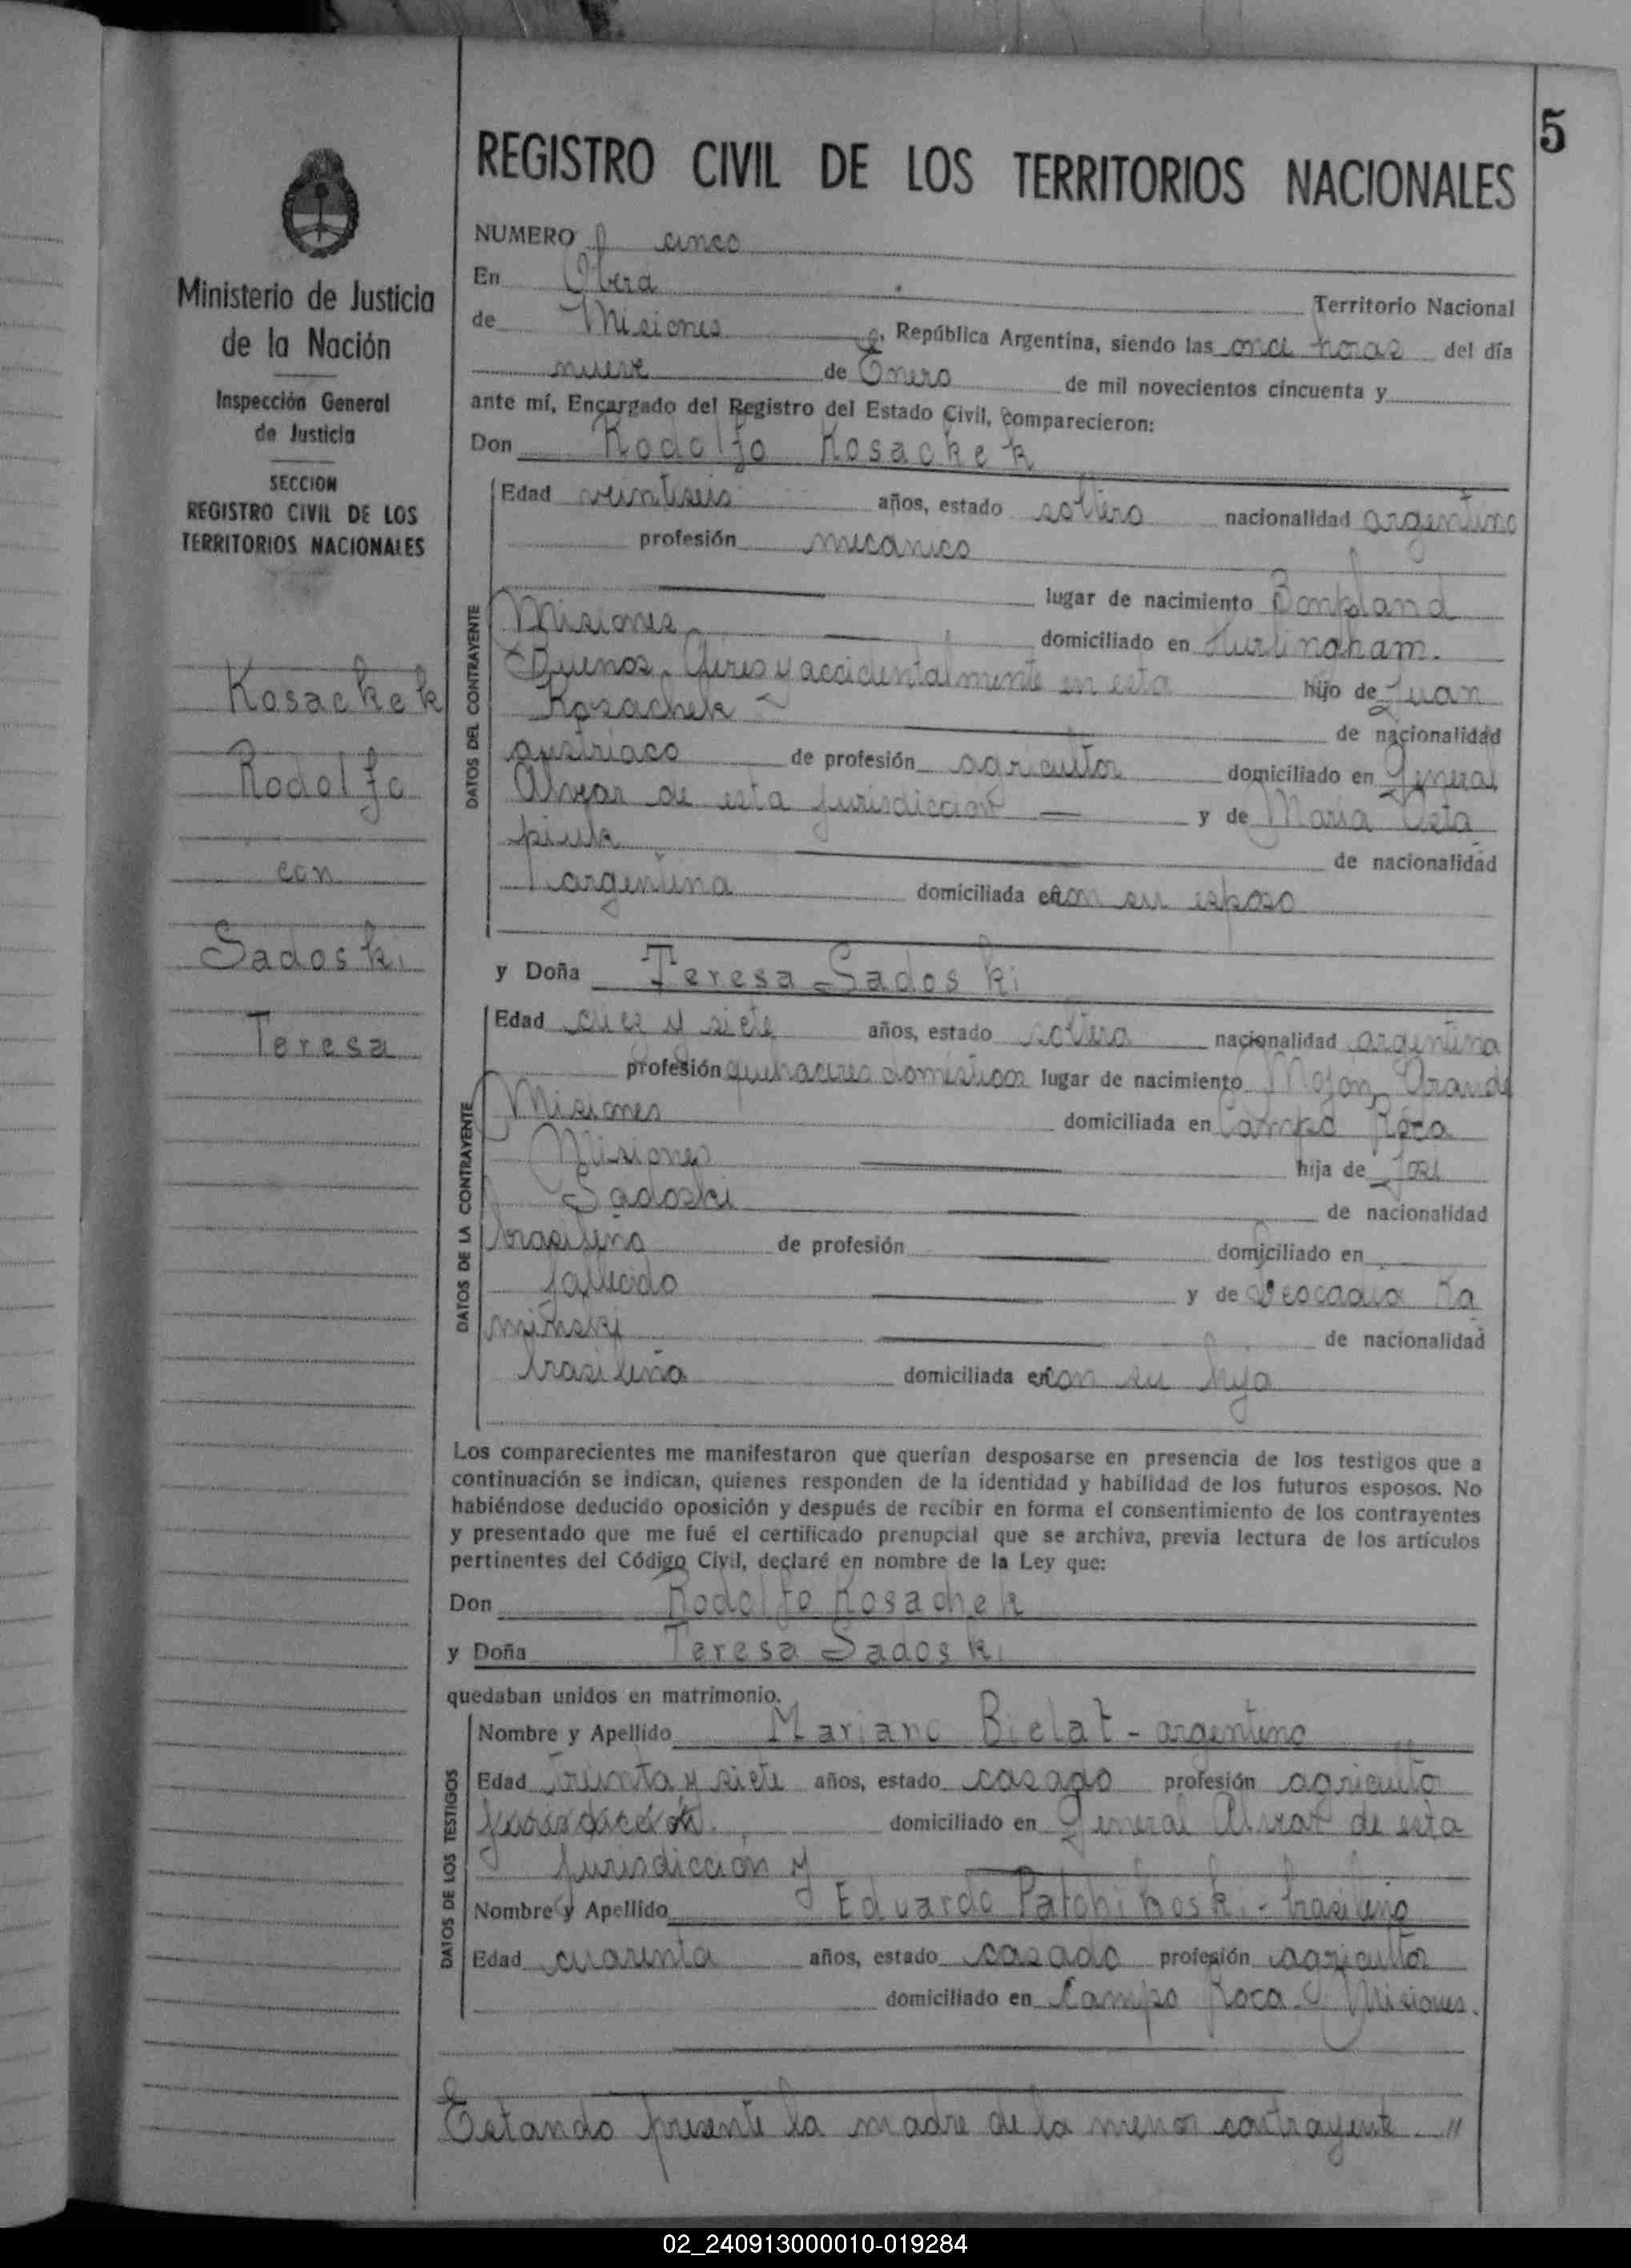 5
REGISTRO CIVIL DE LOS TERRITORIOS NACIONALES
Ministerio de Justicia
de la Nación
Inspección General
de Justicia
SECCION
REGISTRO CIVIL DE LOS
TERRITORIOS NACIONALES
Kosachek
Rodolfo
con
Sadoski
Teresa
NUMERO cinco
En Oberá Territorio Nacional
de Misiones, República Argentina, siendo las once horas del día
nueve de Enero de mil novecientos cincuenta y
ante mí, Encargado del Registro del Estado Civil, comparecieron:
Don Rodolfo Kosachek
DATOS DEL CONTRAYENTE
Edad veintiseis años, estado soltero nacionalidad argentino
profesión mecánico
lugar de nacimiento Bonpland
Misiones domiciliado en Hurlingham.
Buenos Aires y accidentalmente en esta hijo de Juan
Kosachek de nacionalidad
austriaco de profesión agricultor domiciliado en General
Alvear de esta jurisdicción y de María Osta
piuk de nacionalidad
argentina domiciliada en con su esposo
y Doña Teresa Sadoski
DATOS DE LA CONTRAYENTE
Edad diez y siete años, estado soltera nacionalidad argentina
profesión quehaceres domésticos lugar de nacimiento Mojon Grande
Misiones domiciliada en Campo Roca
Misiones hija de José
Sadoski de nacionalidad
brasileño de profesión domiciliado en
fallecido y de Leocadia Ka
minski de nacionalidad
brasileña domiciliada en con su hija
Los comparecientes me manifestaron que querían desposarse en presencia de los testigos que a
continuación se indican, quienes responden de la identidad y habilidad de los futuros esposos. No
habiéndose deducido oposición y después de recibir en forma el consentimiento de los contrayentes
y presentado que me fué el certificado prenupcial que se archiva, previa lectura de los artículos
pertinentes del Código Civil, declaré en nombre de la Ley que:
Don Rodolfo Kosachek
y Doña Teresa Sadoski
quedaban unidos en matrimonio.
DATOS DE LOS TESTIGOS
Nombre y Apellido Mariano Bielat - argentino
Edad treinta y siete años, estado casado profesión agriculto
domiciliado en General Alvear de esta
jurisdiccion y
Nombre y Apellido Eduardo Patchikoski - brasileño
Edad cuarenta años, estado casado profesión agricultor
domiciliado en Campo Roca Misiones.
Estando presente la madre de la menor contrayente
02_240913000010-019284